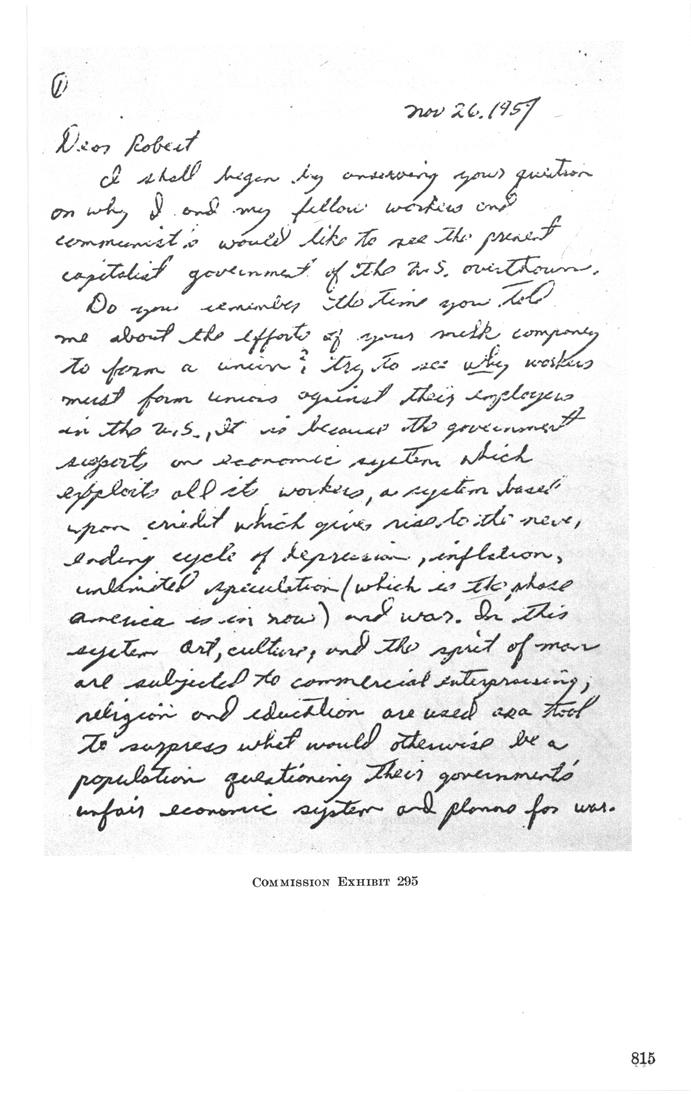 ①
Nov 26. 1957
Dear Robert
I shall began by answering your question
on why I and my fellow workers and
communist's would like to see the present
capitalist government of the U.S. overthown.
Do you remember the time you told
me about the efforts of your milk company
to form a union? try to see why workers
must form unions against their employers
in the U.S., It is because the government
supports an economic system which
exploits all its workers, a system based
upon credit which gives rise to the never
ending cycle of depression, inflation,
unlimited speculation (which is the phase
America is in now) and war. In this
system art, culture, and the spirit of man
are subjected to commercial enterprising,
religion and education are used as a tool
to surpress what would otherwise be a
population questioning their government's
unfair economic system and planns for war.
COMMISSION EXHIBIT 295
815